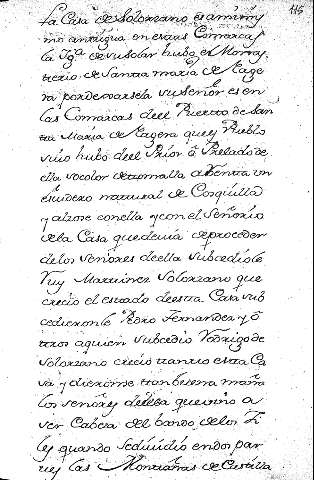 115
La Casa de Solorzano es amui muy
mo antigua en estas Comarcas
la Igª de su solar hubo es Monas
terio de Santa maria de
por de su Señor es en
las Comarcas del Puerto de San
ta Maria de que es Pueblo
suio hubo del Prior ô Prelado de
ella so color de tomalla a Renta un
escudero natural de
y alzose con ella y con el Señorio
de la Casa que devia de proceder
de los Señores de ella subcediole
Ruy Martinez Solorzano que
crecio el estado de esta Casa sub
cedieronle Pedro Fernandez y ô
tros a quien subcedio Rodrigo de
Solorzano crecio tanto esta Ca
sa y dieronse tan buena maña
los señores de ella que vino a
ser Cabeza del bando de los Gi
les quando se dividio en dos par
tes las Montañas de Castilla